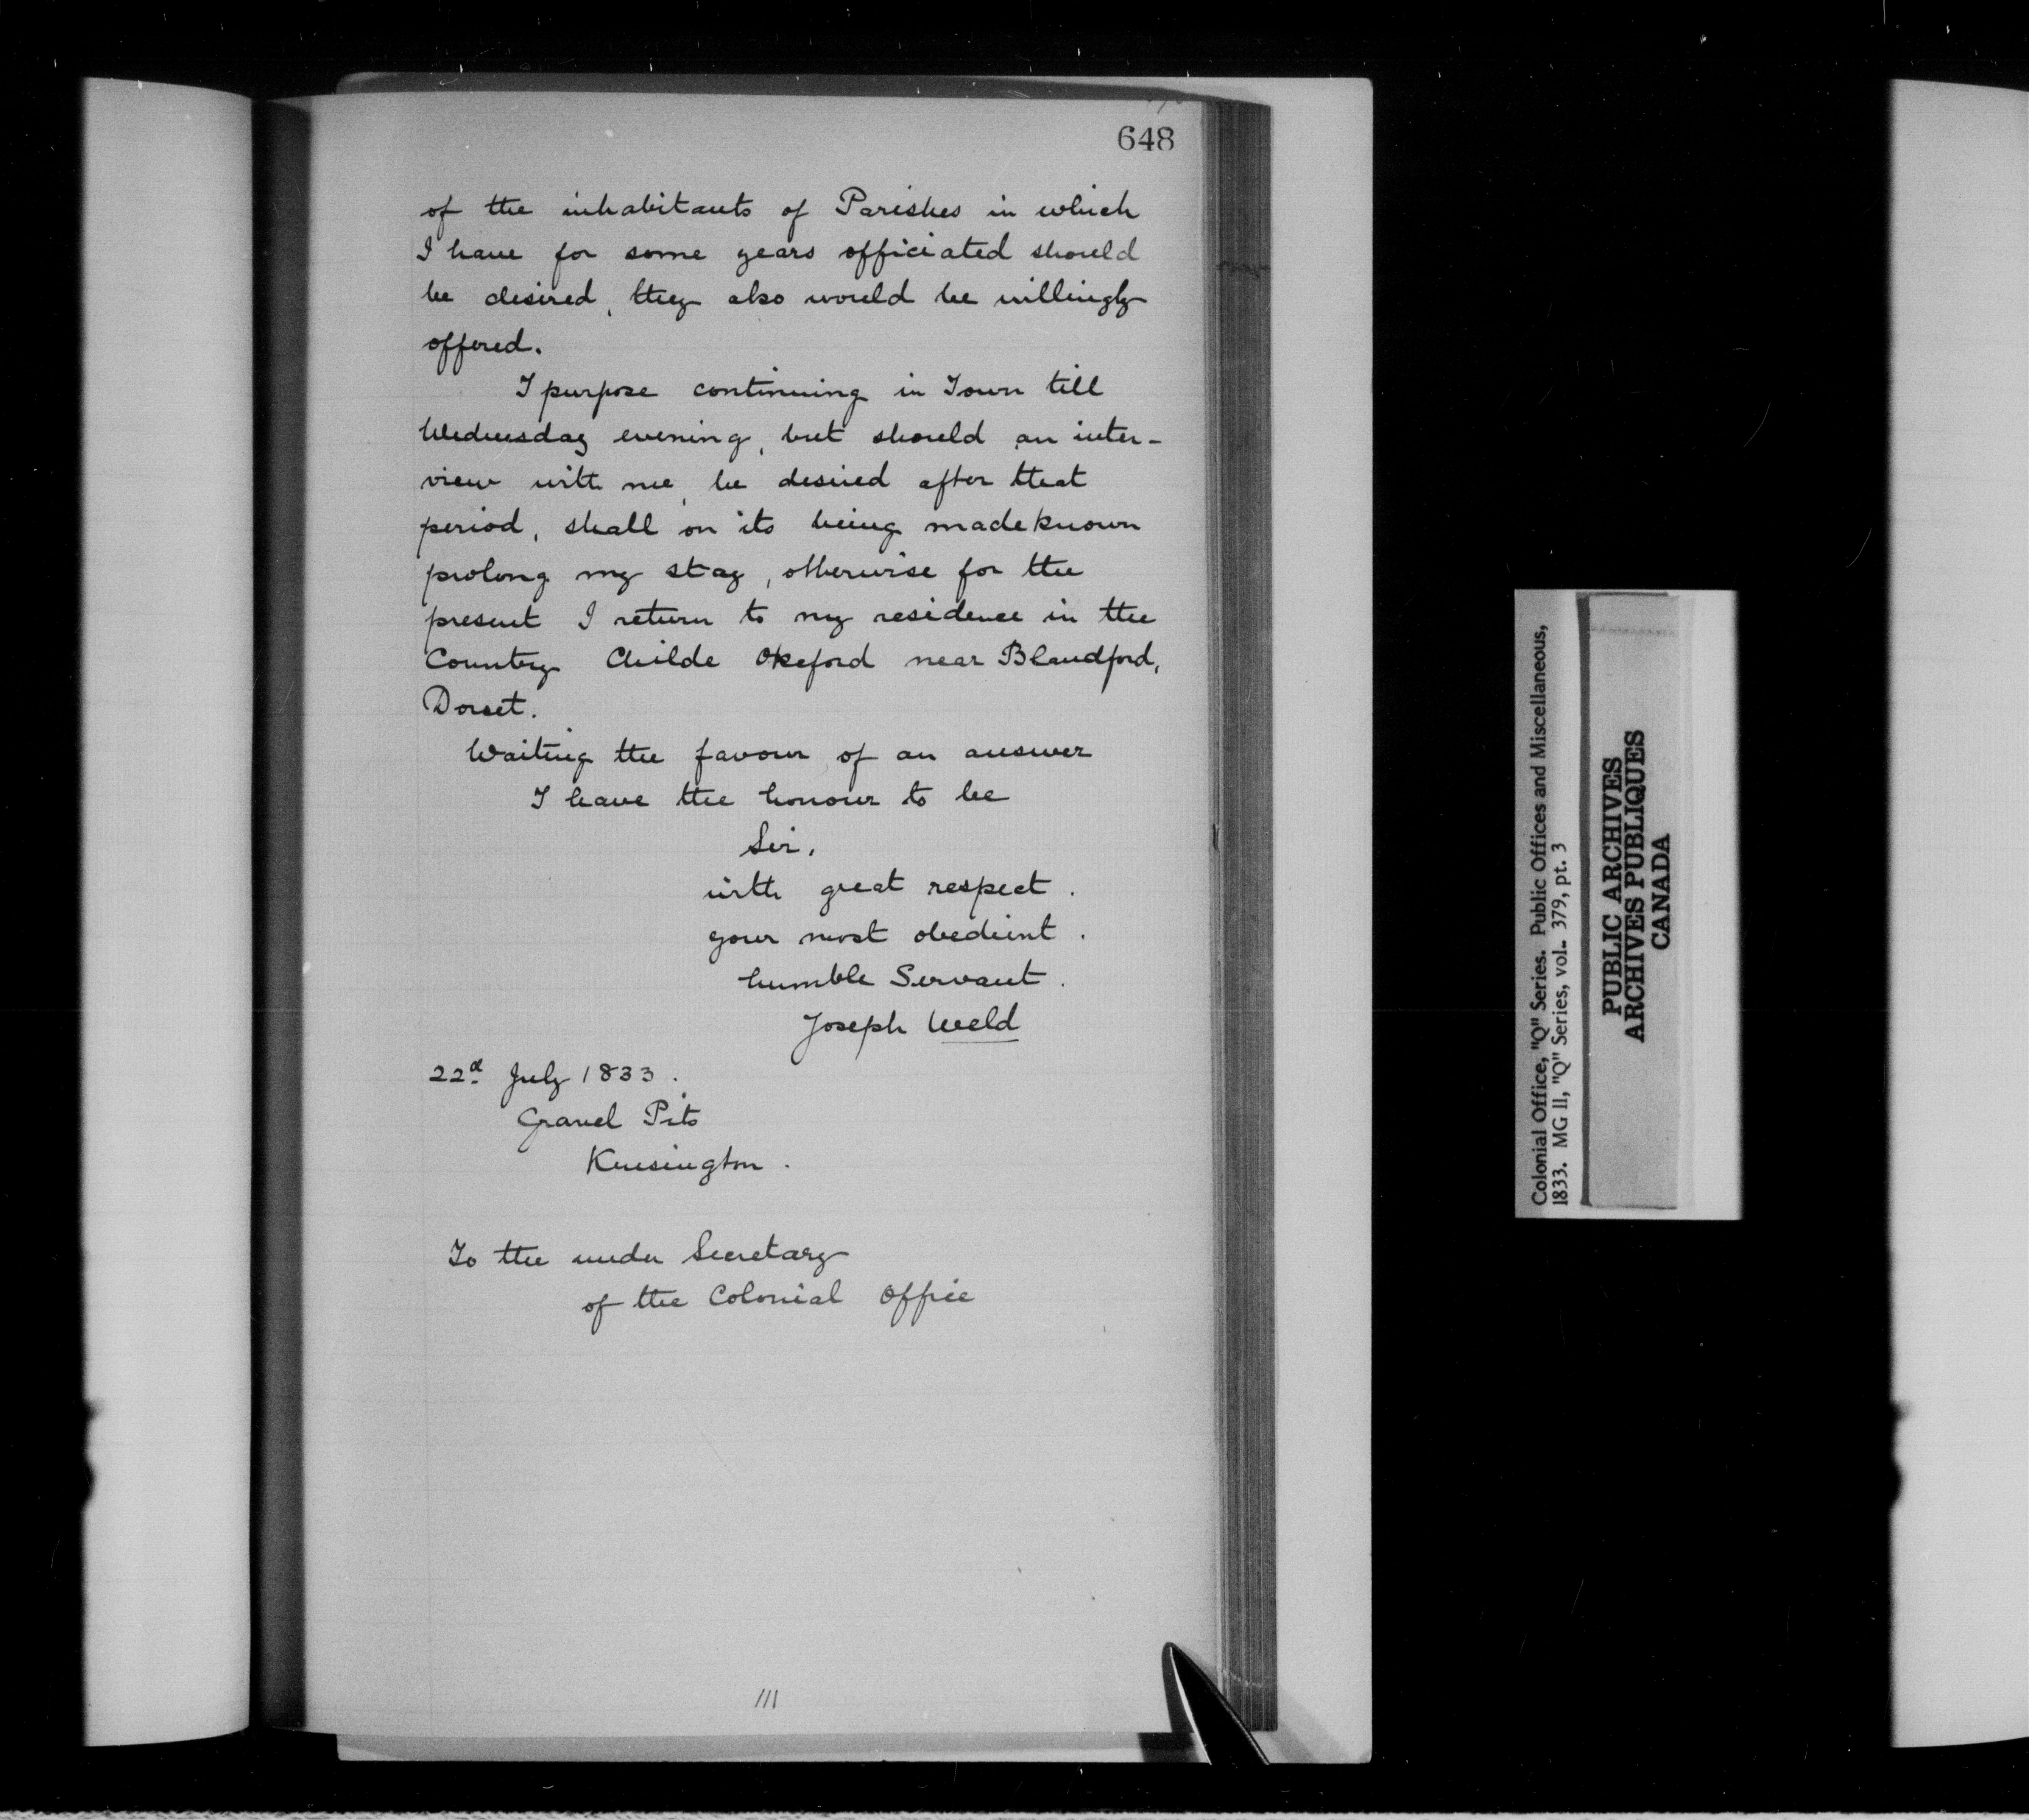 648
of the inhabitants of Parishes in which
I have for some years officiated should
be desired, they also would be willingly
offered.
I purpose continuing in Town till
Wednesday evening, but should an inter-
view with me, be desired after that
period, shall on its being made known
prolong my stay, otherwise for the
present I return to my residence in the
Country Childe Okeford near Blandford,
Dorset.
Waiting the favour of an answer
I have the honour to be
Sir,
with great respect.
your most obedient.
humble Servant.
Joseph Weld
22d July 1833.
Gravel Pits
Kensington.
To the under Secretary
of the Colonial Office
111
Colonial Office, "Q" Series. Public Offices and Miscellaneous,
1833. MG 11, "Q" Series, vol. 379, pt. 3
PUBLIC ARCHIVES
ARCHIVES PUBLIQUES
CANADA